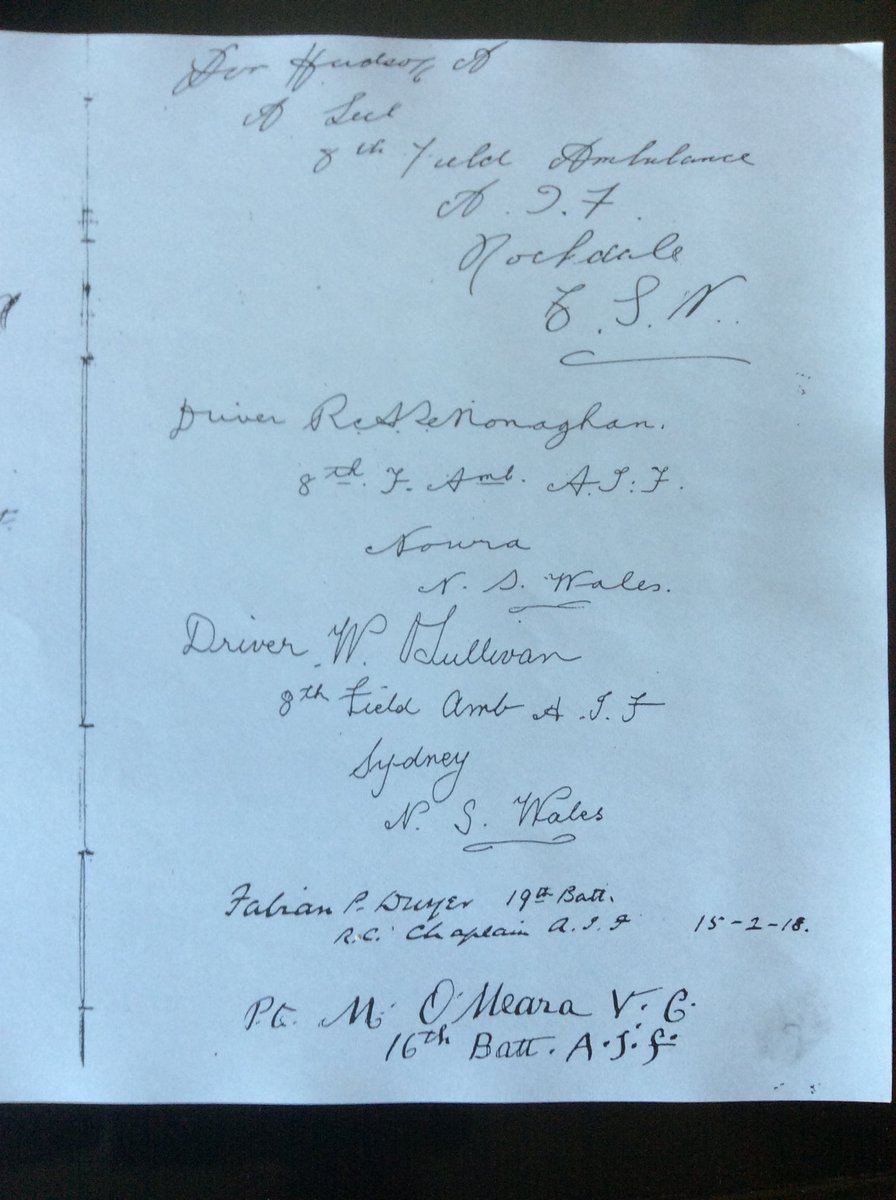 Dvr Hudson A
A Sec
8th Field Ambulance
A. I. F.
Rockdale
N. S. W.
Driver R. A. Monaghan.
8th. F. Amb. A. I. F.
Nowra
N. S. Wales.
Driver W. O'Sullivan
8th Field Amb A. I. F
Sydney
N. S. Wales
Fabian P. Dwyer 19th Batt.
R.C. Chaplain A. I. F 15-2-18.
Pt. M. O'Meara V. C.
16th Batt. A. I. F.